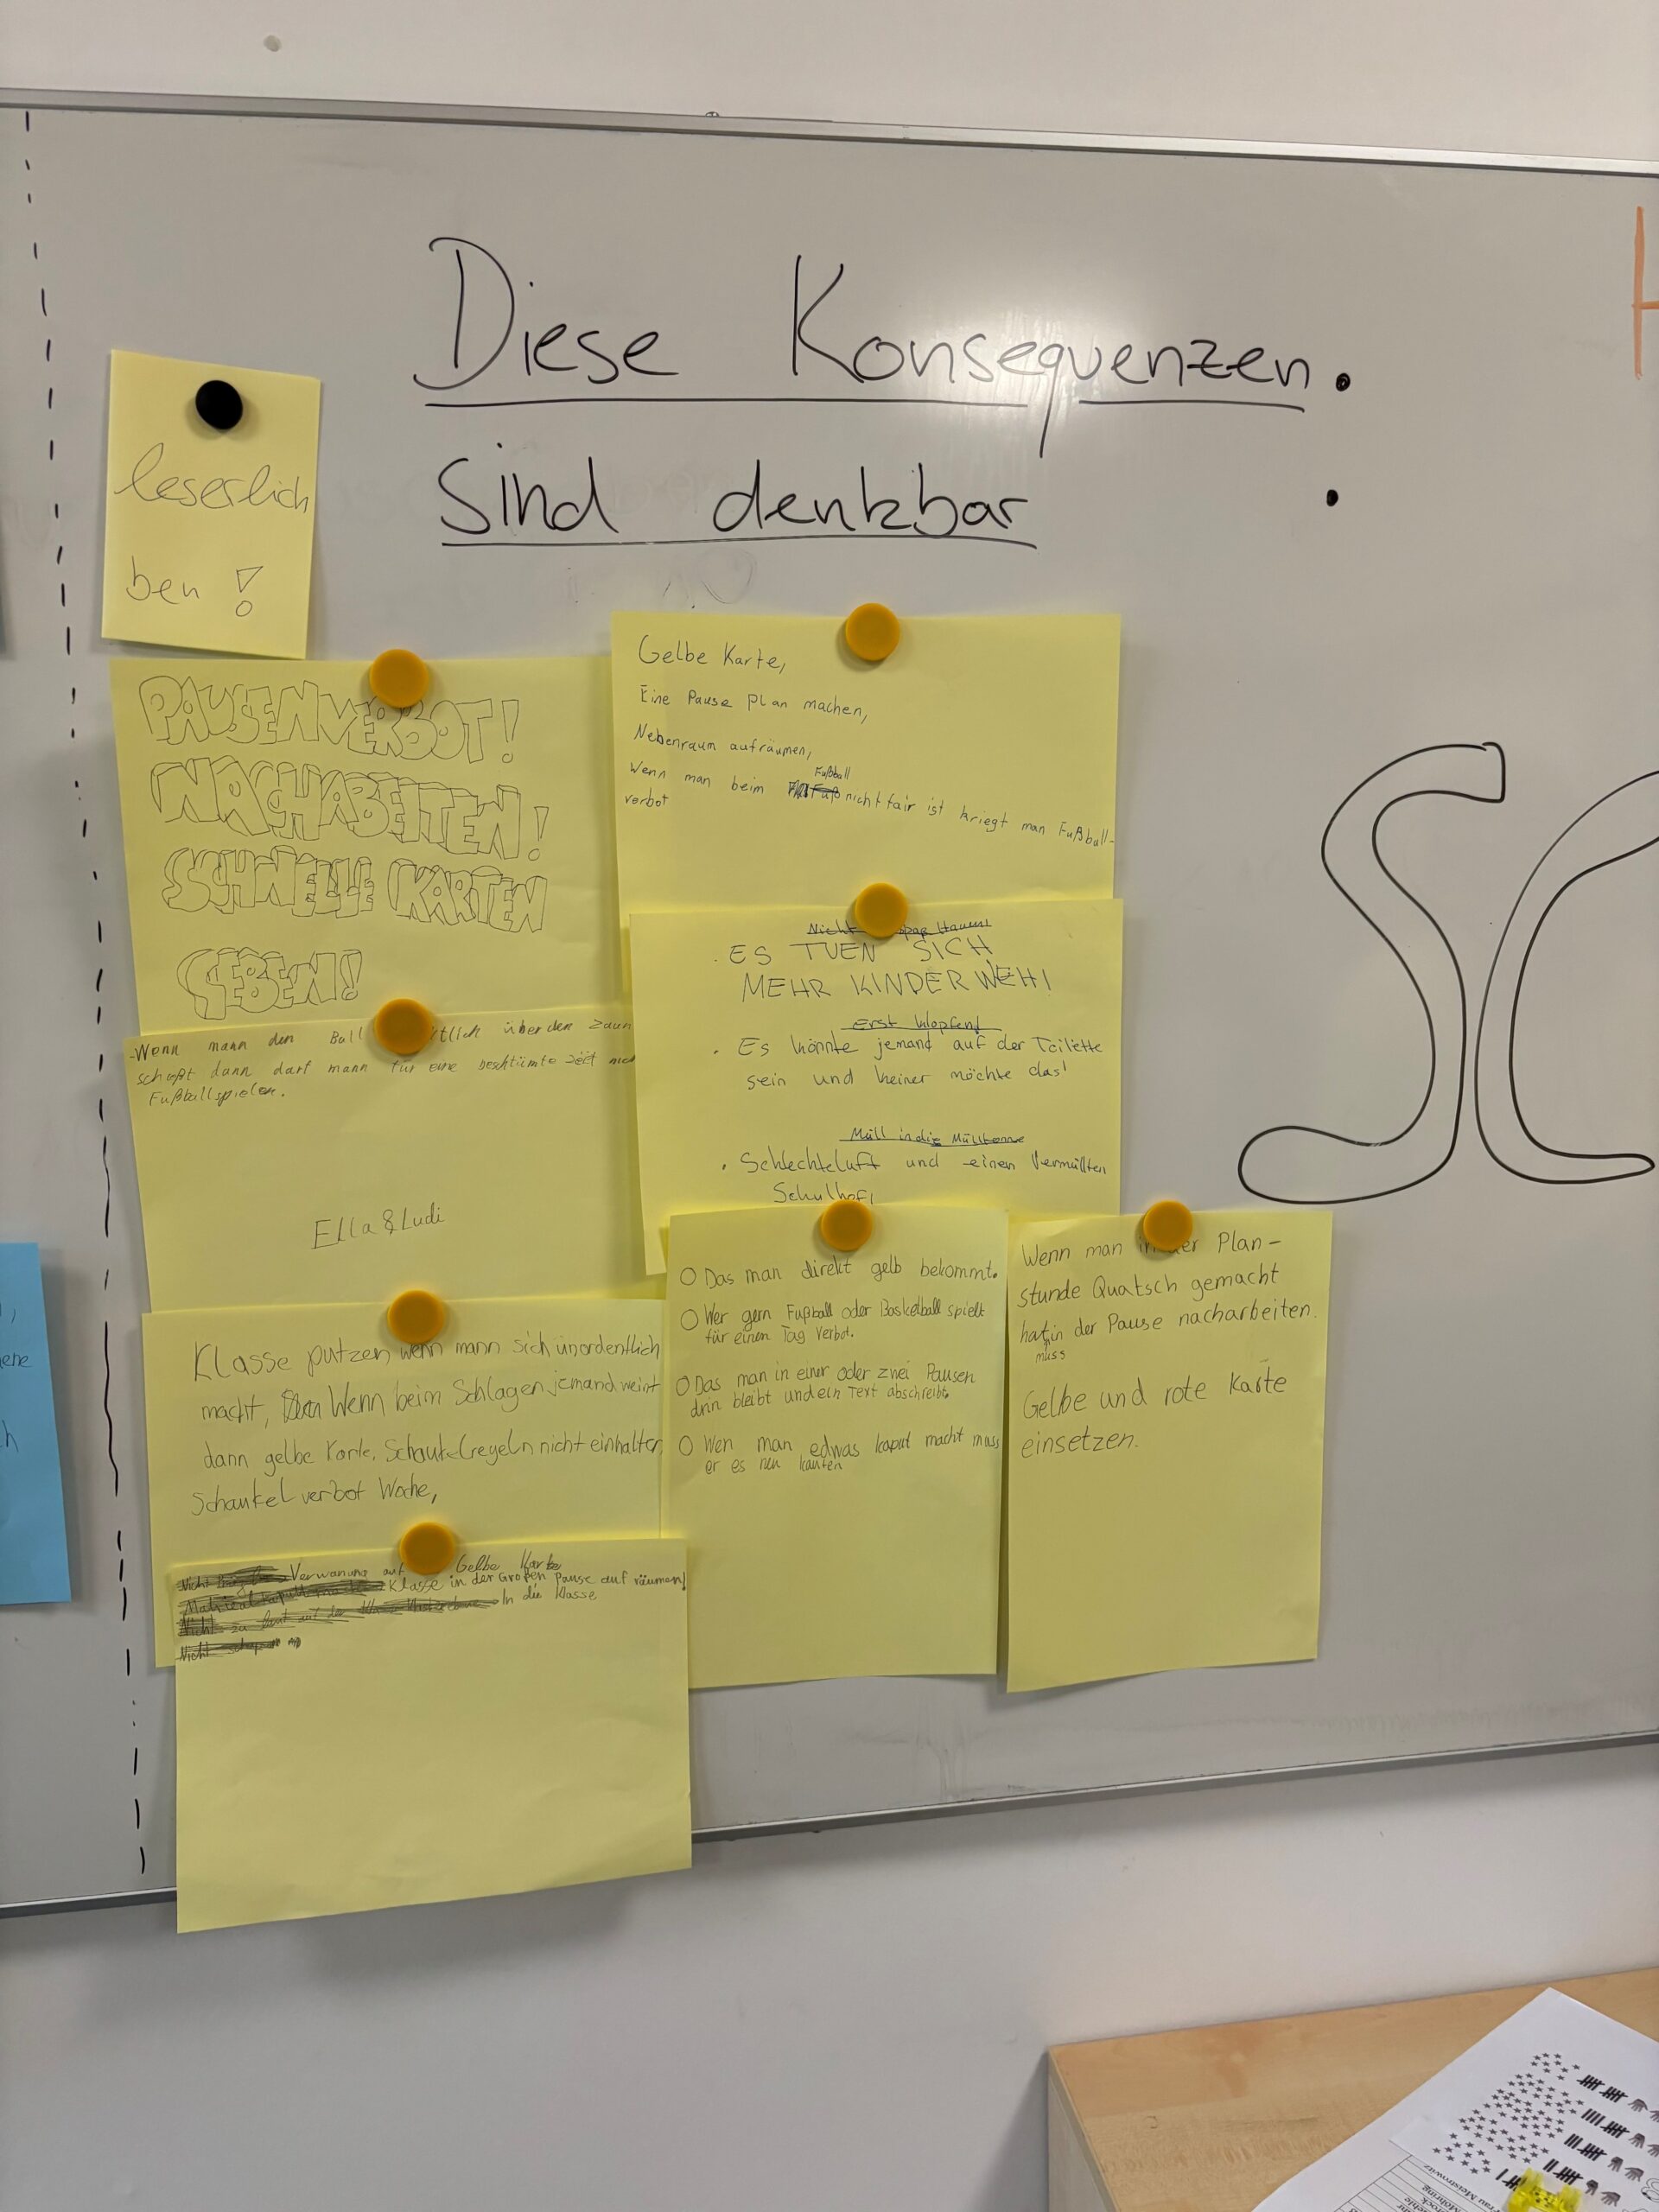 Diese Konsequenzen
sind denkbar
leserlich
ben!
PAUSENVERBOT!
NACHABEITEN!
SCHNELLE KARTEN
GEBEN!
Gelbe Karte,
Eine Pause Plan machen,
Nebenraum aufräumen,
Fußball
Wenn man beim nicht fair ist kriegt man Fußball-
verbot
-Wenn mann den Ball tlich über den Zaun
schießt dann darf mann für eine beschtimte zeit
Fußballspielen.
Ella & Ludi
Nicht Hauen!
. ES TUEN SICH
MEHR KINDER WEH!
Erst klopfen!
. Es könnte jemand auf der Toilette
sein und keiner möchte das!
Müll in die Mülltonne
. Schlechteluft und einen Vermüllten
Schulhof!
Klasse putzen wenn mann sich unordentlich
macht, Wenn beim Schlagen jemand weint
dann gelbe Karte. Schaukelregeln nicht einhalten
Schaukel verbot Woche,
O Das man direkt gelb bekommt.
O Wer gern Fußball oder Basketball spielt
für einen Tag Verbot.
O Das man in einer oder zwei Pausen
drin bleibt und ein Text abschreibt.
O Wen man edwas kaput macht muss
er es neu kaufen
Wenn man in der Plan-
stunde Quatsch gemacht
hat in der Pause nacharbeiten.
muss
Gelbe und rote Karte
einsetzen.
Verwanung auf Gelbe Karte
Klasse in der Großen Pause auf räumen!
Nicht zu laut auf der In die Klasse
Nicht
SC
H